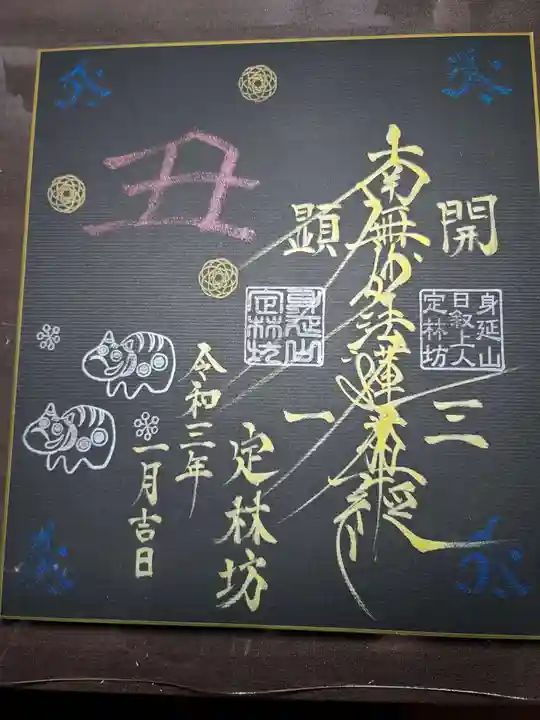 開三
身延山
日叙上人
定林坊
南無妙法蓮華経
顕一
身延山
定林坊
定林坊
丑
令和三年
一月吉日